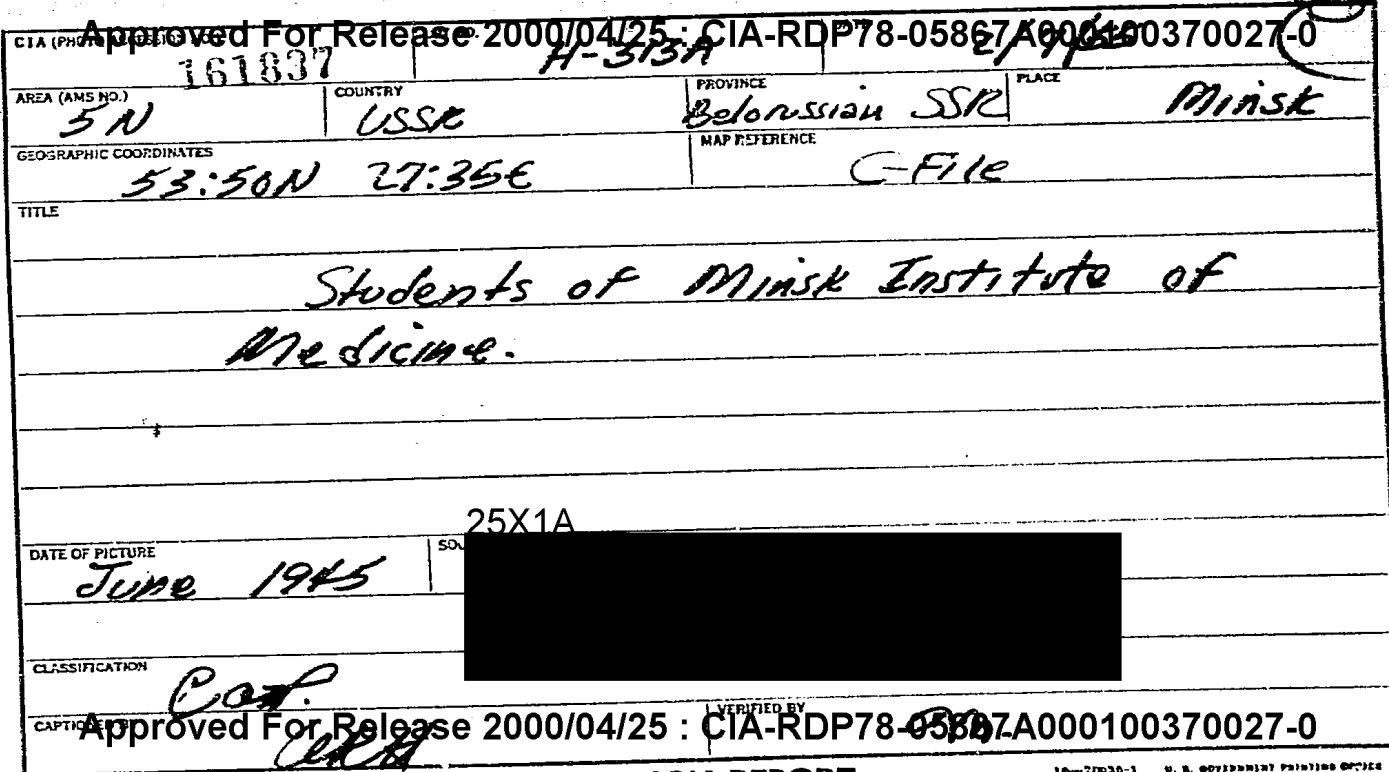 Approved For Release 2000/04/25 : CIA-RDP78-05867A000100370027-0
CIA
161837 H-313A
AREA (AMS NO.) COUNTRY PROVINCE PLACE
5N USSR Belorussian SSR Minsk
GEOGRAPHIC COORDINATES MAP REFERENCE
53:50N 27:35E C-File
TITLE
Students of Minsk Institute of
Medicine.
25X1A
DATE OF PICTURE
June 1945
CLASSIFICATION
Conf.
VERIFIED BY
Approved For Release 2000/04/25 : CIA-RDP78-05867A000100370027-0
U. S. GOVERNMENT PRINTING OFFICE